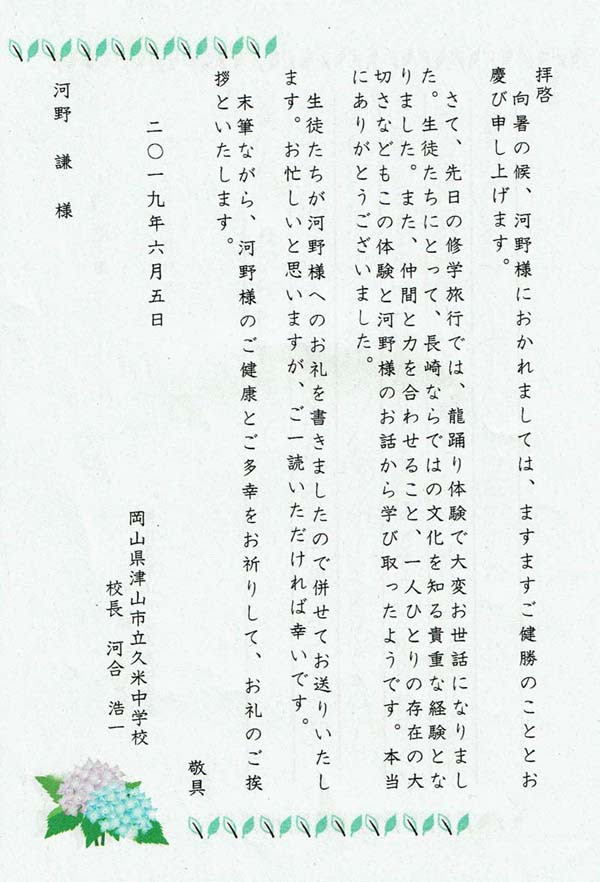 拝啓
向暑の候、河野様におかれましては、ますますご健勝のこととお
慶び申し上げます。
さて、先日の修学旅行では、龍踊り体験で大変お世話になりまし
た。生徒たちにとって、長崎ならではの文化を知る貴重な経験とな
りました。また、仲間と力を合わせること、一人ひとりの存在の大
切さなどもこの体験と河野様のお話から学び取ったようです。本当
にありがとうございました。
生徒たちが河野様へのお礼を書きましたので併せてお送りいたし
ます。お忙しいと思いますが、ご一読いただければ幸いです。
末筆ながら、河野様のご健康とご多幸をお祈りして、お礼のご挨
拶といたします。
敬具
二〇一九年六月五日
岡山県津山市立久米中学校
校長 河合 浩一
河野 謙 様